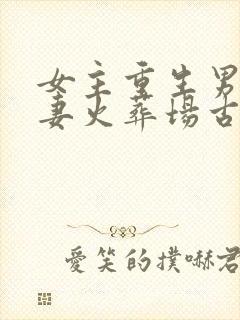 女主重生男
妻火葬場古
愛笑的撲嚇君